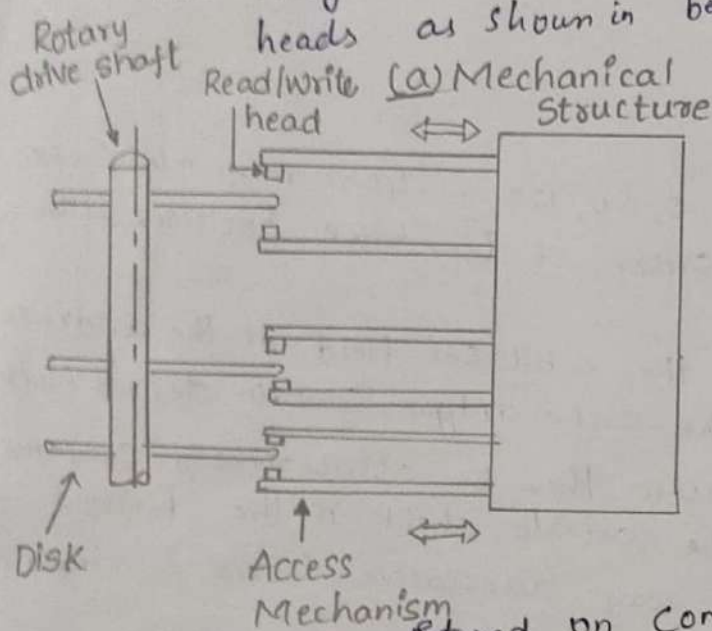 heads as shown in be
Rotary
drive shaft
Read/write
head
(a) Mechanical
Structure
Disk
Access
Mechanism
on Con